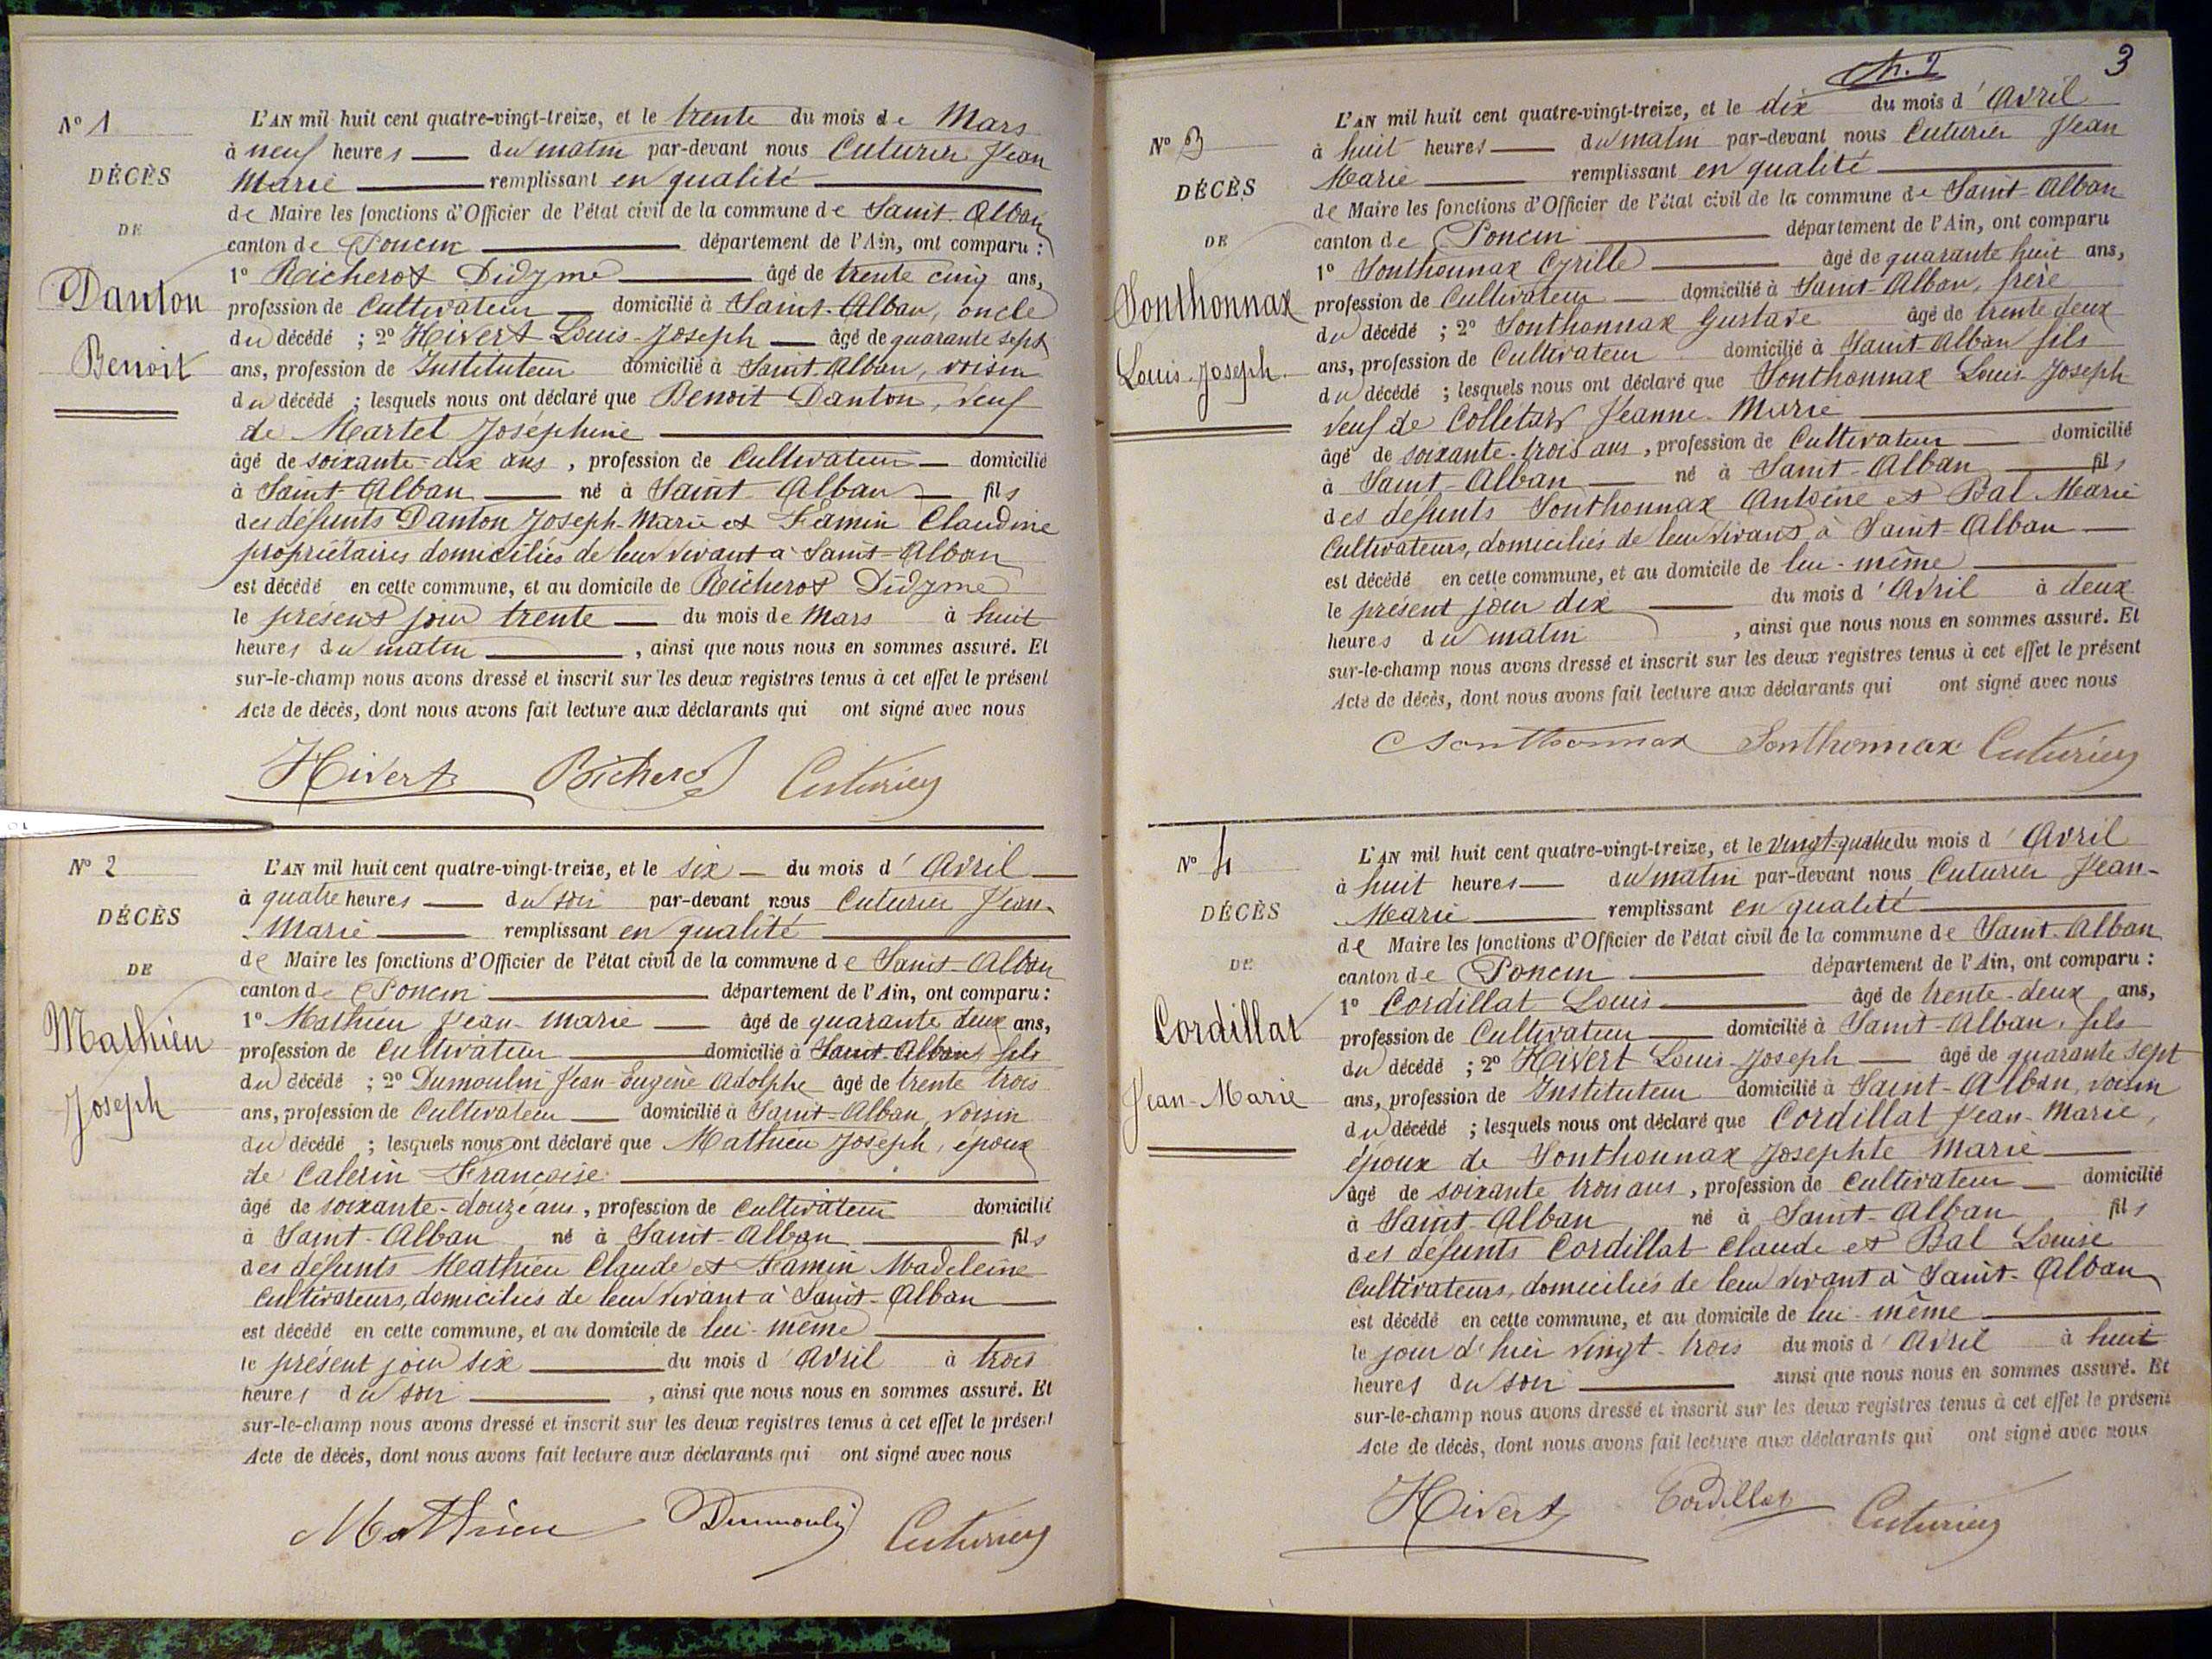 N° 1
DÉCÈS
DE
Danton
Benoit
L'AN mil huit cent quatre-vingt-treize, et le trente du mois de Mars
à neuf heures du matin par-devant nous Cuturier Jean
Marie remplissant en qualité
de Maire les fonctions d'Officier de l'état civil de la commune de Saint-Alban
canton de Poncin département de l'Ain, ont comparu :
1° Richerot Didyme âgé de trente cinq ans,
profession de Cultivateur domicilié à Saint-Alban, oncle
du décédé ; 2° Hivert Louis-Joseph âgé de quarante sept
ans, profession de Instituteur domicilié à Saint-Alban, voisin
du décédé ; lesquels nous ont déclaré que Benoit Danton, veuf
de Martel Joséphine
âgé de soixante-dix ans, profession de Cultivateur domicilié
à Saint-Alban né à Saint-Alban fils
des défunts Danton Joseph-Marie et Famin Claudine
propriétaires domiciliés de leur vivant à Saint-Alban
est décédé en cette commune, et au domicile de Richerot Didyme
le présent jour trente du mois de Mars à huit
heures du matin, ainsi que nous nous en sommes assuré. Et
sur-le-champ nous avons dressé et inscrit sur les deux registres tenus à cet effet le présent
Acte de décès, dont nous avons fait lecture aux déclarants qui ont signé avec nous
Hivert Richerot Cuturier
N° 2
DÉCÈS
DE
Mathieu
Joseph
L'AN mil huit cent quatre-vingt-treize, et le six du mois d'Avril
à quatre heures du soir par-devant nous Cuturier Jean-
Marie remplissant en qualité
de Maire les fonctions d'Officier de l'état civil de la commune de Saint-Alban
canton de Poncin département de l'Ain, ont comparu :
1° Mathieu Jean-Marie âgé de quarante deux ans,
profession de Cultivateur domicilié à Saint-Alban, fils
du décédé ; 2° Dumoulin Jean-Eugène Adolphe âgé de trente trois
ans, profession de Cultivateur domicilié à Saint-Alban, voisin
du décédé ; lesquels nous ont déclaré que Mathieu Joseph, époux
de Calerin Françoise
âgé de soixante-douze ans, profession de Cultivateur domicilié
à Saint-Alban né à Saint-Alban fils
des défunts Mathieu Claude et Famin Madeleine
Cultivateurs, domiciliés de leur vivant à Saint-Alban
est décédé en cette commune, et au domicile de lui-même
le présent jour six du mois d'Avril à trois
heures du soir, ainsi que nous nous en sommes assuré. Et
sur-le-champ nous avons dressé et inscrit sur les deux registres tenus à cet effet le présent
Acte de décès, dont nous avons fait lecture aux déclarants qui ont signé avec nous
Mathieu Dumoulin Cuturier
3
N° 3
DÉCÈS
DE
Sonthonnax
Louis-Joseph
L'AN mil huit cent quatre-vingt-treize, et le dix du mois d'Avril
à huit heures du matin par-devant nous Cuturier Jean
Marie remplissant en qualité
de Maire les fonctions d'Officier de l'état civil de la commune de Saint-Alban
canton de Poncin département de l'Ain, ont comparu
1° Sonthonnax Cyrille âgé de quarante huit ans,
profession de Cultivateur domicilié à Saint-Alban, frère
du décédé ; 2° Sonthonnax Gustave âgé de trente deux
ans, profession de Cultivateur domicilié à Saint-Alban fils
du décédé ; lesquels nous ont déclaré que Sonthonnax Louis-Joseph
veuf de Colletaz Jeanne-Marie
âgé de soixante-trois ans, profession de Cultivateur domicilié
à Saint-Alban né à Saint-Alban fils
des défunts Sonthonnax Antoine et Bal Marie
Cultivateurs, domiciliés de leur vivant à Saint-Alban
est décédé en cette commune, et au domicile de lui-même
le présent jour dix du mois d'Avril à deux
heures du matin, ainsi que nous nous en sommes assuré. Et
sur-le-champ nous avons dressé et inscrit sur les deux registres tenus à cet effet le présent
Acte de décès, dont nous avons fait lecture aux déclarants qui ont signé avec nous
C Sonthonnax Sonthonnax Cuturier
N° 4
DÉCÈS
DE
Cordillat
Jean-Marie
L'AN mil huit cent quatre-vingt-treize, et le vingt-quatre du mois d'Avril
à huit heures du matin par-devant nous Cuturier Jean-
Marie remplissant en qualité
de Maire les fonctions d'Officier de l'état civil de la commune de Saint-Alban
canton de Poncin département de l'Ain, ont comparu :
1° Cordillat Louis âgé de trente-deux ans,
profession de Cultivateur domicilié à Saint-Alban, fils
du décédé ; 2° Hivert Louis-Joseph âgé de quarante sept
ans, profession de Instituteur domicilié à Saint-Alban, voisin
du décédé ; lesquels nous ont déclaré que Cordillat Jean-Marie,
époux de Sonthonnax Josephte Marie
âgé de soixante trois ans, profession de Cultivateur domicilié
à Saint-Alban né à Saint-Alban fils
des défunts Cordillat Claude et Bal Louise
Cultivateurs, domiciliés de leur vivant à Saint-Alban
est décédé en cette commune, et au domicile de lui-même
le jour d'hier vingt-trois du mois d'Avril à huit
heures du soir ainsi que nous nous en sommes assuré. Et
sur-le-champ nous avons dressé et inscrit sur les deux registres tenus à cet effet le présent
Acte de décès, dont nous avons fait lecture aux déclarants qui ont signé avec nous
Hivert Cordillat Cuturier